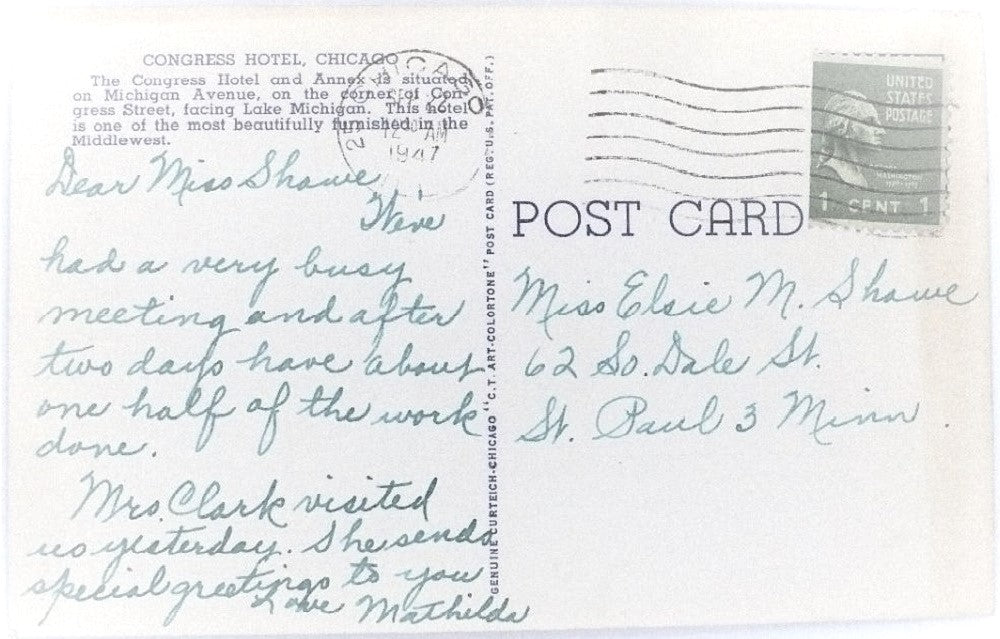 CONGRESS HOTEL, CHICAGO
The Congress Hotel and Annex is situated
on Michigan Avenue, on the corner of Con-
gress Street, facing Lake Michigan. This hotel
is one of the most beautifully furnished in the
Middlewest.
Dear Miss Shawe,
We've
had a very busy
meeting and after
two days have about
one half of the work
done.
Mrs. Clark visited
us yesterday. She sends
special greetings to you
Love Mathilda
GENUINE CURTEICH-CHICAGO "C.T. ART-COLORTONE" POST CARD (REG. U.S. PAT. OFF.)
CHICAGO
AM
1947
UNITED
STATES
POSTAGE
WASHINGTON
1 CENT 1
POST CARD
Miss Elsie M. Shawe
62 So. Dale St.
St. Paul 3 Minn.